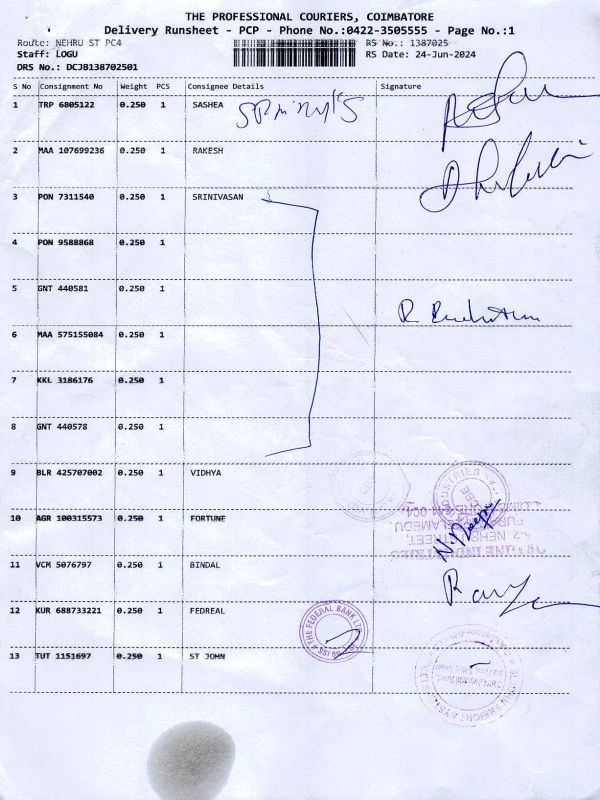 THE PROFESSIONAL COURIERS, COIMBATORE
Delivery Runsheet - PCP - Phone No.:0422-3505555 - Page No.:1
Route: NEHRU ST PC4 RS No.: 1387025
Staff: LOGU RS Date: 24-Jun-2024
DRS No.: DCJB138702501
S No Consignment No Weight PCS Consignee Details Signature
1 TRP 6805122 0.250 1 SASHEA
2 MAA 107699236 0.250 1 RAKESH
3 PON 7311540 0.250 1 SRINIVASAN
4 PON 9588868 0.250 1
5 GNT 440581 0.250 1
6 MAA 575155084 0.250 1
7 KKL 3186176 0.250 1
8 GNT 440578 0.250 1
9 BLR 425707002 0.250 1 VIDHYA
10 AGR 100315573 0.250 1 FORTUNE
11 VCM 5076797 0.250 1 BINDAL
12 KUR 688733221 0.250 1 FEDREAL
THE FEDERAL BANK LT
13 TUT 1151697 0.250 1 ST JOHN